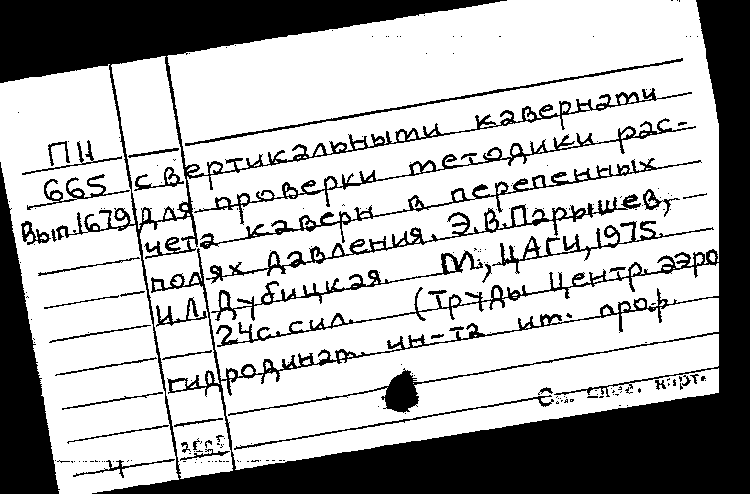 ПН
665
Вып.1679
с вертикальными кавернами
для проверки методики рас-
чета каверн в перепенных
полях давления. Э.В.Парышев,
И.Л.Дубицкая. М., ЦАГИ, 1975.
24с. сил. (Труды Центр. аэро
гидродинам. ин-та им. проф.
См. след. карт.
4